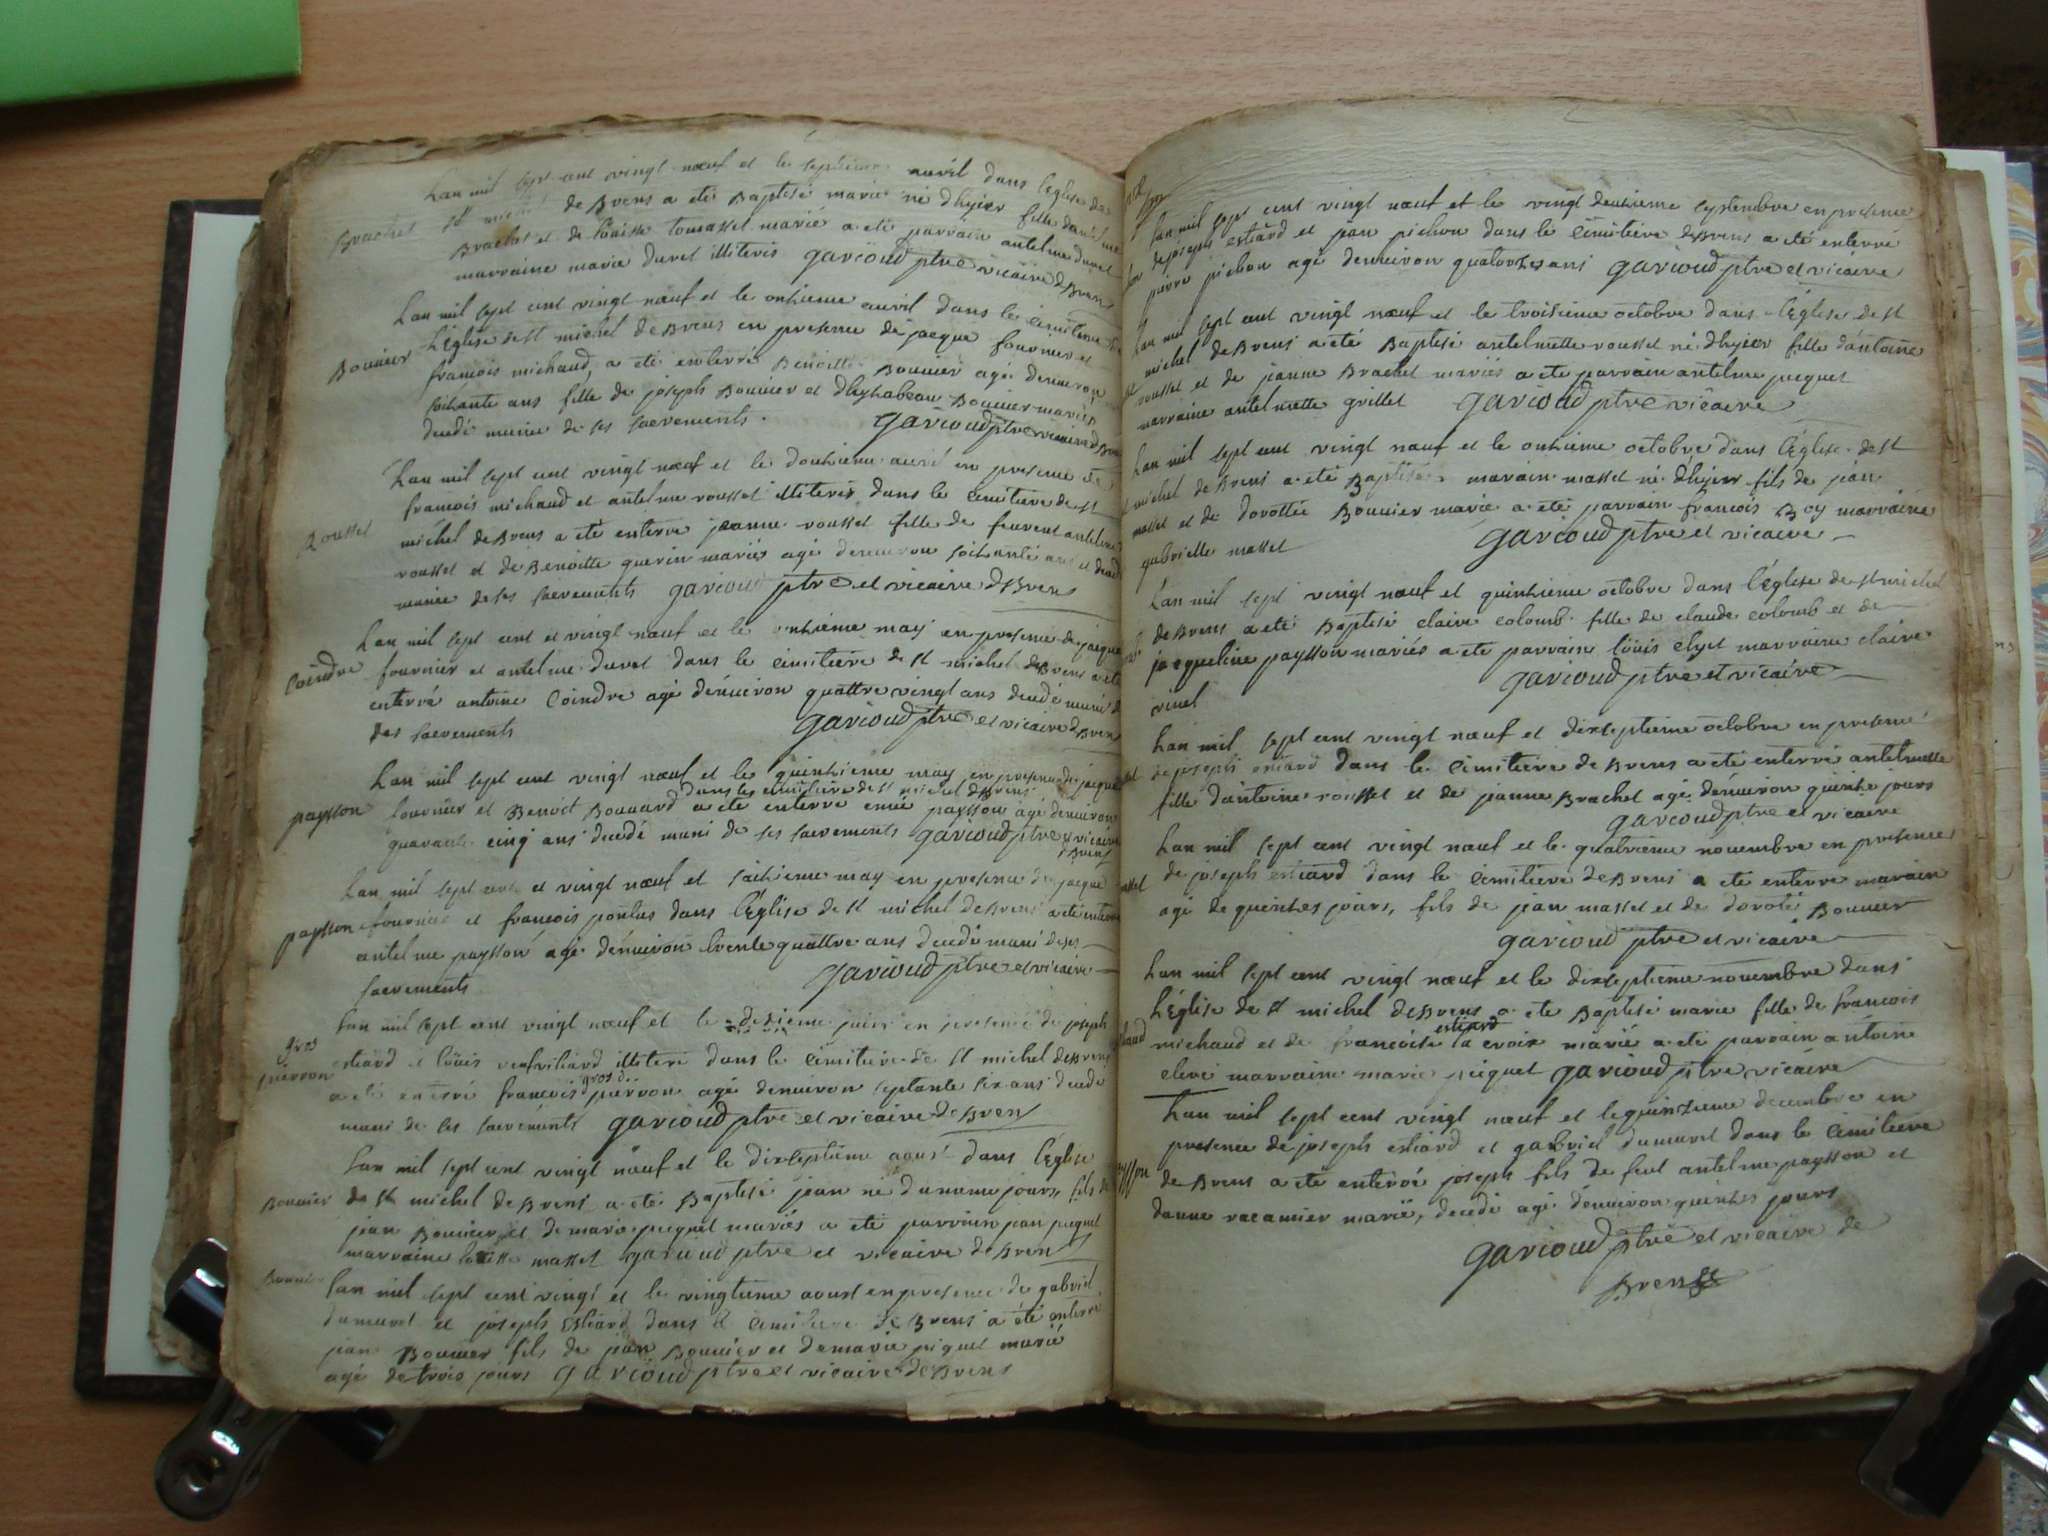 Lan mil sept cent vingt nœuf et le septieme avril dans leglise de
Brachet
St michel de Brens a eté Baptisé marie né dhyier fille danthelme
Brachet et de Louisse tomasset mariés a eté parrain antelme duret
marraine marie duret illiteris garioud ptre vicaire de Brens
Lan mil sept cent vingt nœuf et le onhieme avril dans le cimitiere de
Bouuier
LEglise de St michel de Brens en presence de jacque fournier et
francois michaud, a eté enterré Benoitte Bouuier agé denuiron
soihante ans fille de joseph Bouuier et dhysabeau Bouuier mariés
decedé munie de ses sacrements. garioud ptre vicaire de Brens
Lan mil sept cent vingt nœuf et le douhieme avril en presence de
francois michaud et antelme rousset illiteris dans le cimitiere de st
Rousset
michel de Brens a eté enterré jeanne rousset fille de feu antelme
rousset et de Benoitte guerin mariés agé denuiron soihante ans et decedé
munie de ses sacrements garioud ptre et vicaire de Brens
Lan mil sept cent et vingt nœuf et le onhieme may en presence de jacque
Coindre
fournier et antelme duret dans le cimitiere de St michel de Brens a eté
enterré antoine Coindre agé denuiron quattre vingt ans decedé muni de
des sacrements garioud ptre et vicaire de Brens
Lan mil sept cent vingt nœuf et le quinhieme may en presence de jacque
dans le cimitiere de st michel de Brens
paysson
fournier et Benoit Bouuard a eté enterré paysson agé denuiron
quarante cinq ans decedé muni de ses sacrements garioud ptre et vicaire
de Brens
Lan mil sept cent et vingt nœuf et saihieme may en presence de jacque
paysson
fournier et francois pontus dans lÉglise de St michel de Brens a eté enterré
antelme paysson agé denuiron trente quattre ans decedé muni de ses
sacrements garioud ptre et vicaire
Lan mil sept cent vingt nœuf et le desieme juin en presence de joseph
gros
pierron
estiard et Loüis illiteré dans le cimitiere de St michel de Brens
gros
a eté enterré francois pierron agé denuiron septante six ans decedé
muni de ses sacrements garioud ptre et vicaire de Brens
Lan mil sept cent vingt nœuf et le dixseptieme aoust dans lÉglise
Bouuier
de St michel de Brens a eté Baptisé jean né du meme jours, fils de
jean Bouuier et de marie picquet mariés a eté parrain jean picquet
marraine masset garioud ptre et vicaire de Brens
Bouuier
Lan mil sept cent vingt et le vingtieme aoust en presence de gabriel
dumaret et joseph Estiard dans le cimitiere de Brens a été enterré
jean Bouuier fils de jean Bouuier et de marie piquet marié
agé de trois jours garioud ptre et vicaire de Brens
Lan mil sept cent vingt nœuf et le vingt deuxieme septembre en presence
de joseph estiard et jean pichon dans le cimitiere de Brens a eté enterré
pierre pichon agé denuiron quatorhes ans garioud ptre et vicaire
Lan mil sept cent vingt nœuf et le troisieme octobre dans lÉglise de st
michel de Brens a eté Baptisé antelmette rousset né dhyier fille dantoine
rousset et de jeanne Brachet mariés a eté parrain antelme picquet
marraine antelmette grillet garioud ptre vicaire
Lan mil sept cent vingt nœuf et le onhieme octobre dans lÉglise de st
michel de Brens a eté Baptisé marain masset né dhyier fils de jean
masset et de dorottée Bouuier marié a eté parrain francois Boy marraine
gabrielle masset garioud ptre et vicaire
Lan mil sept vingt nœuf et quinhieme octobre dans lÉglise de st michel
de Brens a eté Baptisé claire colomb fille de claude colomb et de
jacqueline paysson mariés a eté parrain loüis clyet marraine claire
vinet garioud ptre et vicaire
Lan mil sept cent vingt nœuf et dixseptieme octobre en presence
de joseph estiard dans le cimitiere de Brens a eté enterré antelmette
fille dantoine rousset et de jeanne Brachet agé denuiron quinhe jours
garioud ptre et vicaire
Lan mil sept cent vingt nœuf et le quatrieme nouembre en presence
de joseph estiard dans le cimitiere de Brens a eté enterré marain
agé de quinhes jours, fils de jean masset et de doroté Bouuier
garioud ptre et vicaire
Lan mil sept cent vingt nœuf et le dixseptieme nouembre dans
LÉglise de St michel de Brens a eté Baptisé marie fille de francois
estiard
michaud et de francoise la croix marié a eté parrain antoine
clerc marraine marie picquet garioud ptre vicaire
Lan mil sept cent vingt nœuf et le quinzieme decembre en
presence de joseph estiard et gabriel dumaret dans le cimitiere
de Brens a eté enterré joseph fils de feu antelme paysson et
danne racamier marié, decedé agé denuiron quinhes jours
garioud ptre et vicaire de
Brens